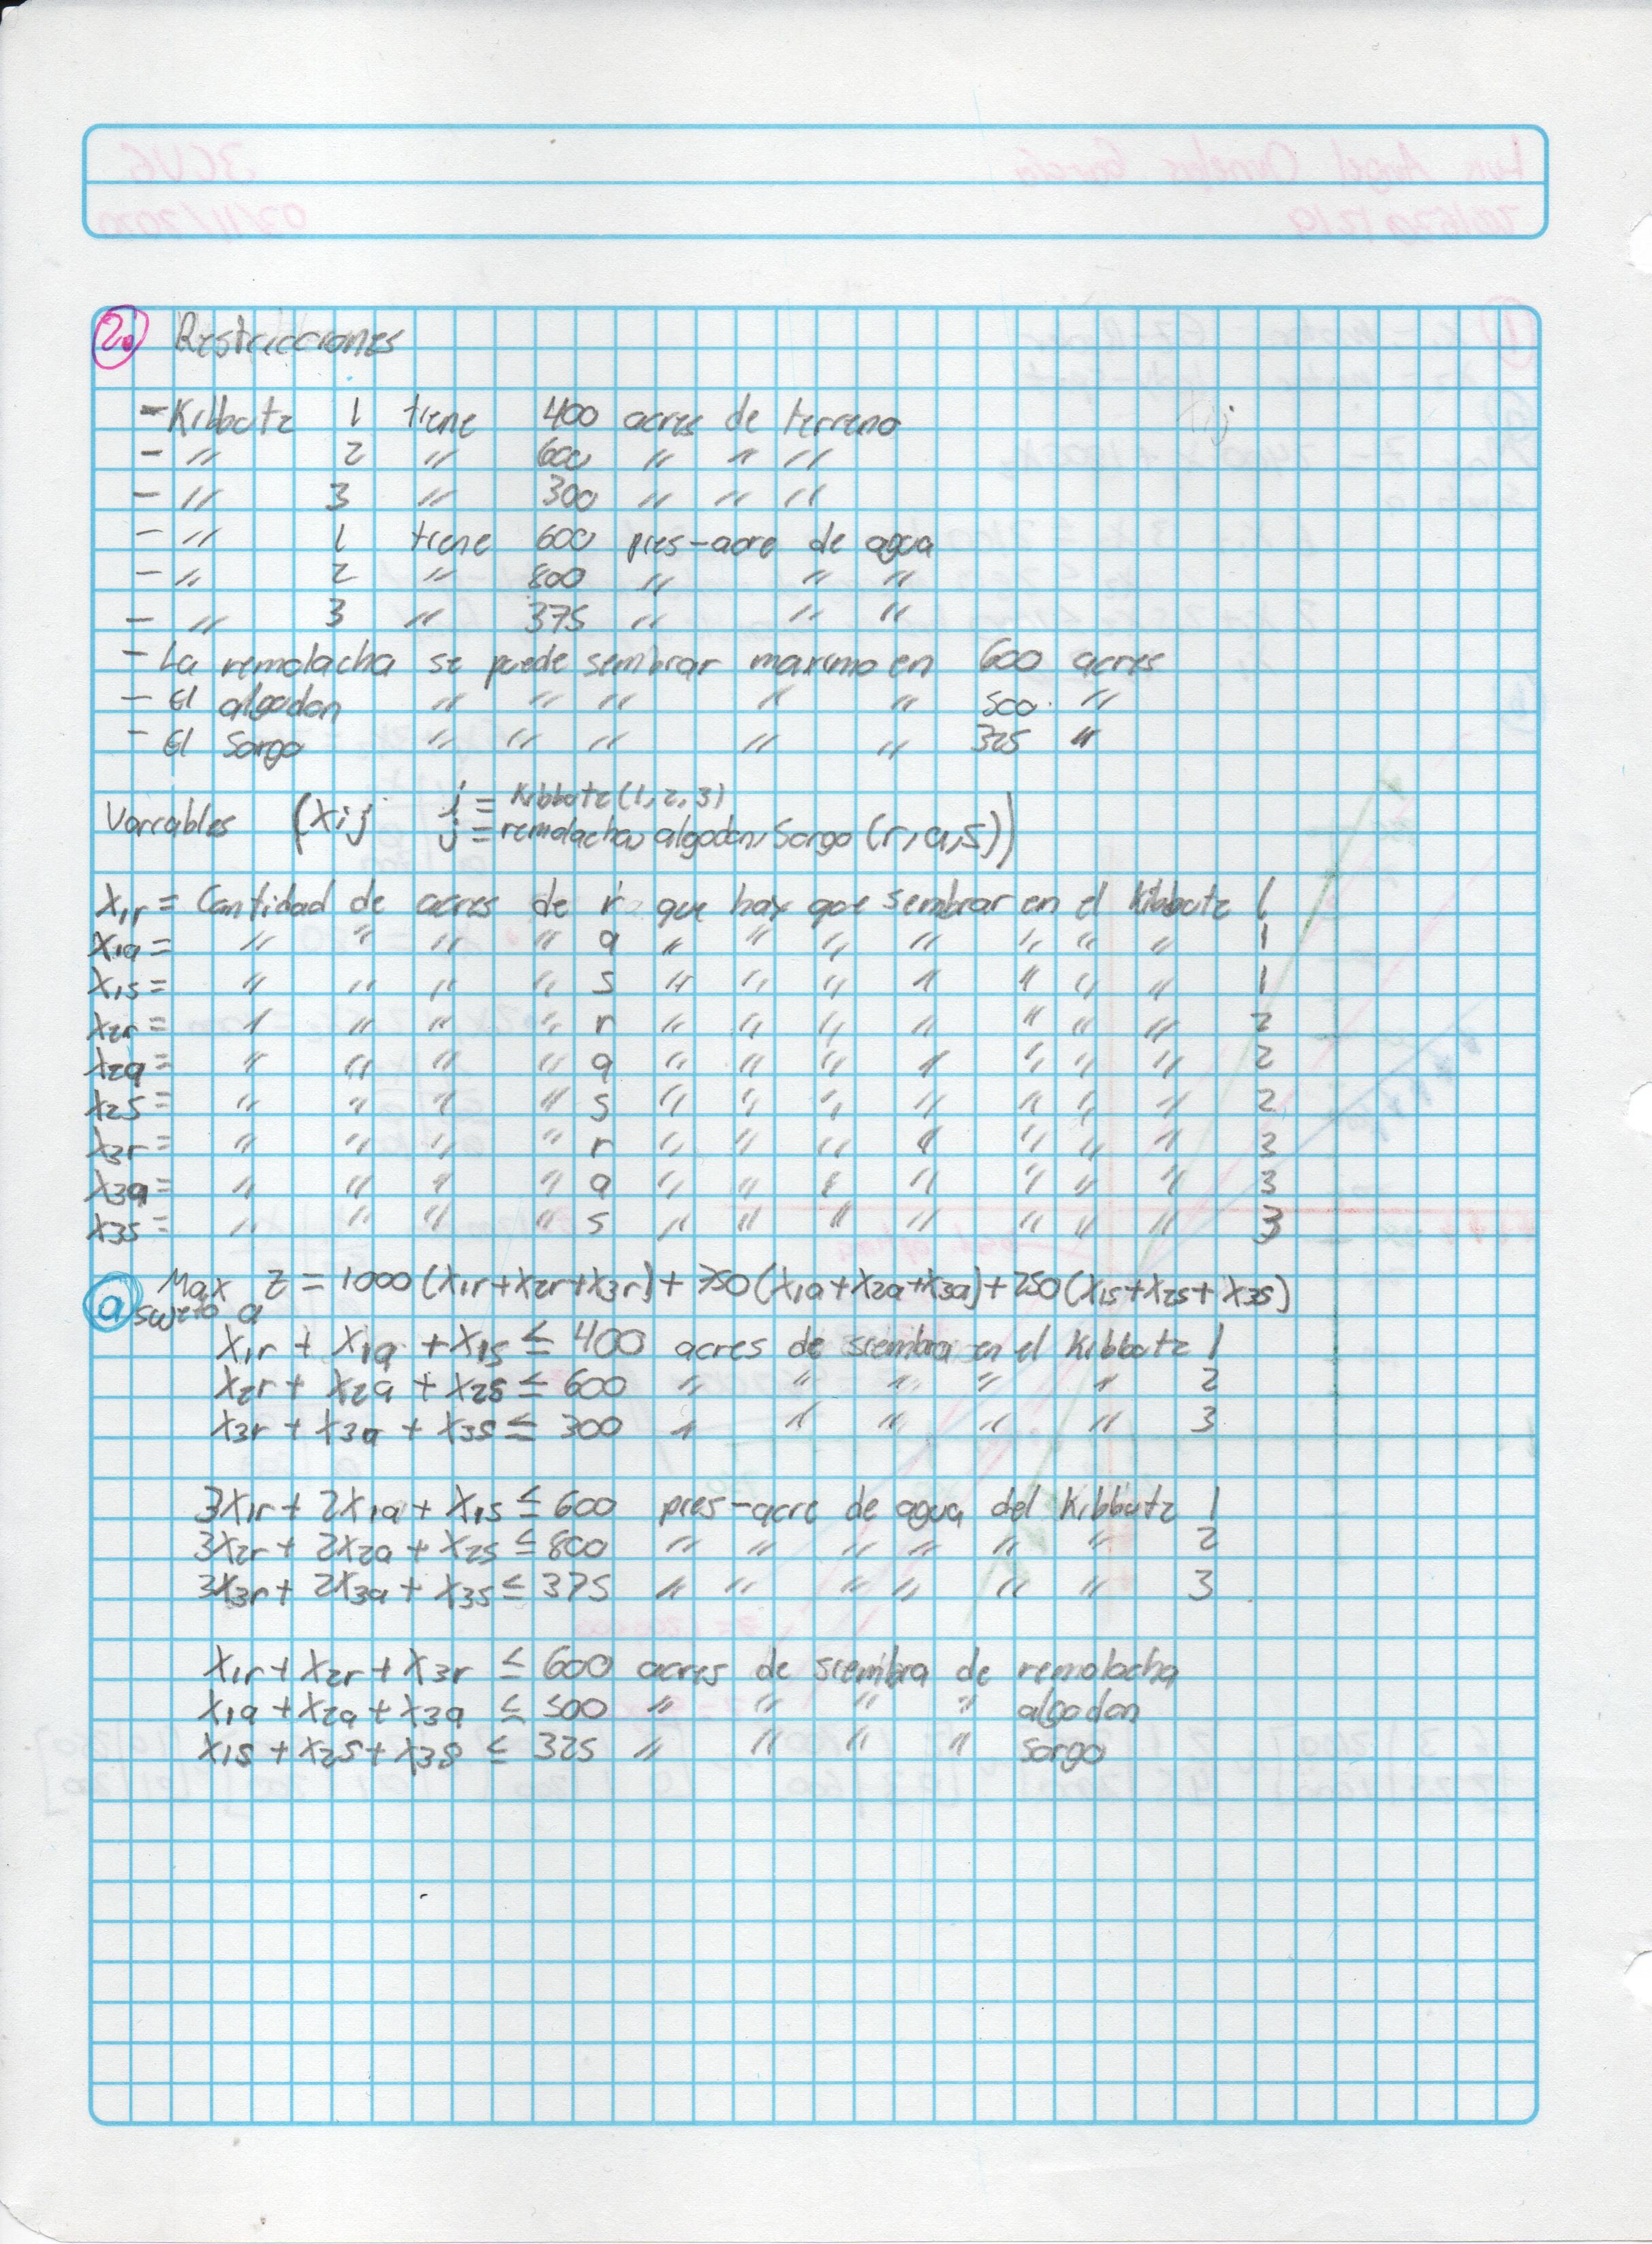 2. Restricciones
- Kibbutz 1 tiene 400 acres de terreno
- " 2 " 600 " " "
- " 3 " 300 " " "
- " 1 tiene 600 pies-acre de agua
- " 2 " 800 " " "
- " 3 " 375 " " "
- La remolacha se puede sembrar maximo en 600 acres
- El algodon " " " " " 500 "
- El Sorgo " " " " " 325 "
Variables (Xij i = Kibbutz (1, 2, 3)
j = remolacha, algodon, Sorgo (r, a, s))
X1r = Cantidad de acres de r que hay que sembrar en el Kibbutz 1
X1a = " " " " a " " " " " " " 1
X1s = " " " " s " " " " " " " 1
X2r = " " " " r " " " " " " " 2
X2a = " " " " a " " " " " " " 2
X2s = " " " " s " " " " " " " 2
X3r = " " " " r " " " " " " " 3
X3a = " " " " a " " " " " " " 3
X3s = " " " " s " " " " " " " 3
a Max Z = 1000 (X1r + X2r + X3r) + 750 (X1a + X2a + X3a) + 250 (X1s + X2s + X3s)
sujeto a
X1r + X1a + X1s ≤ 400 acres de siembra en el Kibbutz 1
X2r + X2a + X2s ≤ 600 " " " " " 2
X3r + X3a + X3s ≤ 300 " " " " " 3
3X1r + 2X1a + X1s ≤ 600 pies-acre de agua del Kibbutz 1
3X2r + 2X2a + X2s ≤ 800 " " " " " " 2
3X3r + 2X3a + X3s ≤ 375 " " " " " " 3
X1r + X2r + X3r ≤ 600 acres de siembra de remolacha
X1a + X2a + X3a ≤ 500 " " " " algodon
X1s + X2s + X3s ≤ 325 " " " " sorgo